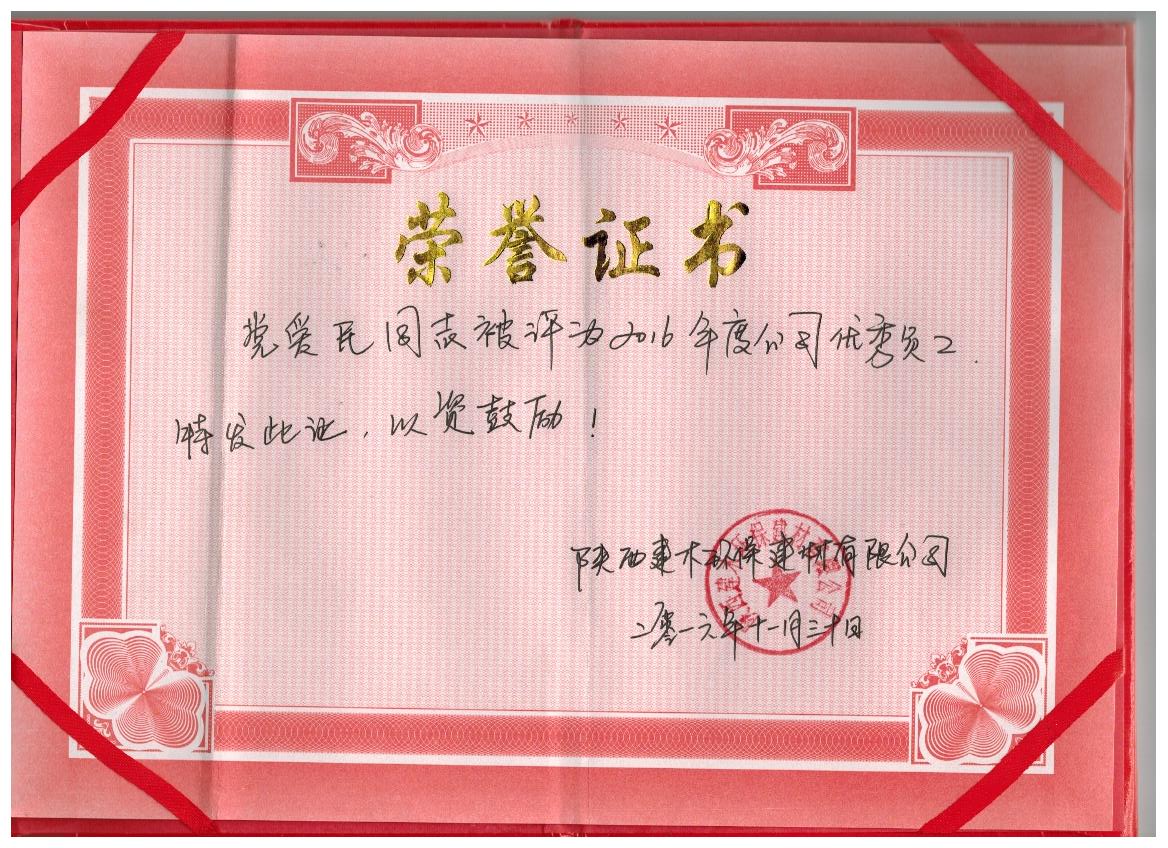 荣誉证书
党爱民同志被评为2016年度公司优秀员工.
特发此证，以资鼓励！
陕西建木环保建材有限公司
二零一六年十一月三十日
陕西建木环保建材有限公司